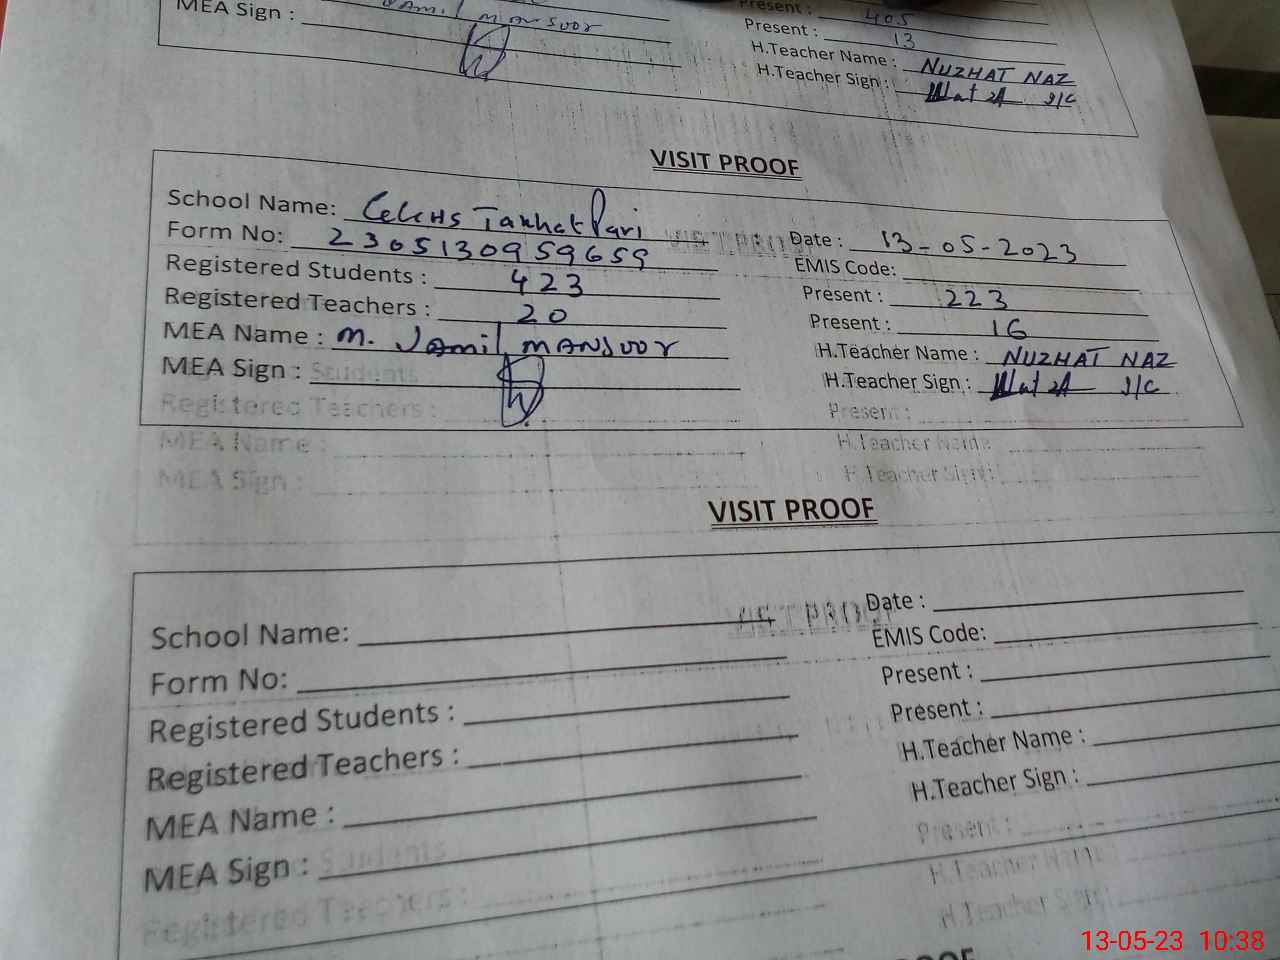 MEA Sign : Jamil Mansoor
Present : 405
Present : 13
H.Teacher Name : NUZHAT NAZ
H.Teacher Sign : I/C
VISIT PROOF
School Name: Takhat Pari Date : 13-05-2023
Form No: 2305130959659 EMIS Code:
Registered Students : 423 Present : 223
Registered Teachers : 20 Present : 16
MEA Name : M. JAMIL MANSOOR H.Teacher Name : NUZHAT NAZ
MEA Sign : Students H.Teacher Sign : I/C
Registered Teachers : Present :
MEA Name : H.Teacher Name:
MEA Sign : H.Teacher Sign :
VISIT PROOF
School Name: VISIT PROOF Date :
Form No: EMIS Code:
Registered Students : Present :
Registered Teachers : Present :
MEA Name : H.Teacher Name :
MEA Sign : Students H.Teacher Sign :
Registered Teachers : Present :
H.Teacher Name
H.Teacher Sign :
13-05-23 10:38